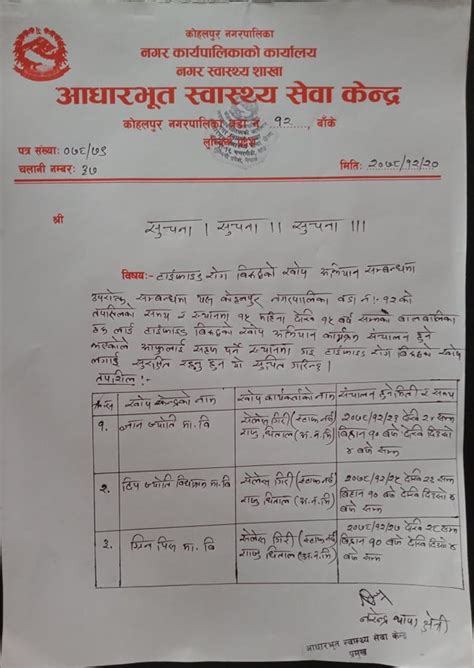 कोहलपुर नगरपालिका
नगर कार्यपालिकाको कार्यालय
नगर स्वास्थ्य शाखा
आधारभूत स्वास्थ्य सेवा केन्द्र
कोहलपुर नगरपालिका वडा नं. १२, बाँके
पत्र संख्या: ०७८/७९
चलानी नम्बर: ३७
मिति: २०७८/१२/२०
श्री
सुचना । सुचना ।। सुचना ।।।
विषय:- टाईफाइड रोग विरुद्धको खोप अभियान सम्बन्धमा
उपरोक्त सम्बन्धमा यस कोहलपुर नगरपालिका वडा नं.- १२ को
तपसिलका समय र स्थानमा १५ महिना देखि १५ वर्ष सम्मका बालबालिका
हरु लाई टाईफाइड विरुद्धको खोप अभियान कार्यक्रम संचालन हुने
भएकोले आफुलाई सहज पर्ने स्थानमा गई टाईफाइड रोग विरुद्धको खोप
लगाई सुरक्षित रहनु हुन यो सुचित गरिन्छ ।
तपसिल:
क्र.स खोप केन्द्रको नाम खोप कार्यकर्ताको नाम संचालन हुने मिति र समय
१. ज्ञान ज्योति मा.वि गिरी (स्टाफ नर्स) राजु (अ.न.मि) २०७८/१२/२३ देखि २४ सम्म बिहान १० बजे देखि दिउँसो ४ बजे सम्म
२. दिप ज्योति मा.वि गिरी (स्टाफ नर्स) राजु (अ.न.मि) २०७८/१२/२५ देखि २६ सम्म बिहान १० बजे देखि दिउँसो ४ बजे सम्म
३. ग्रिन पिस मा.वि गिरी (स्टाफ नर्स) राजु (अ.न.मि) २०७८/१२/२७ देखि २८ सम्म बिहान १० बजे देखि दिउँसो ४ बजे सम्म
नरेन्द्र थापा क्षेत्री
आधारभूत स्वास्थ्य सेवा केन्द्र
प्रमुख